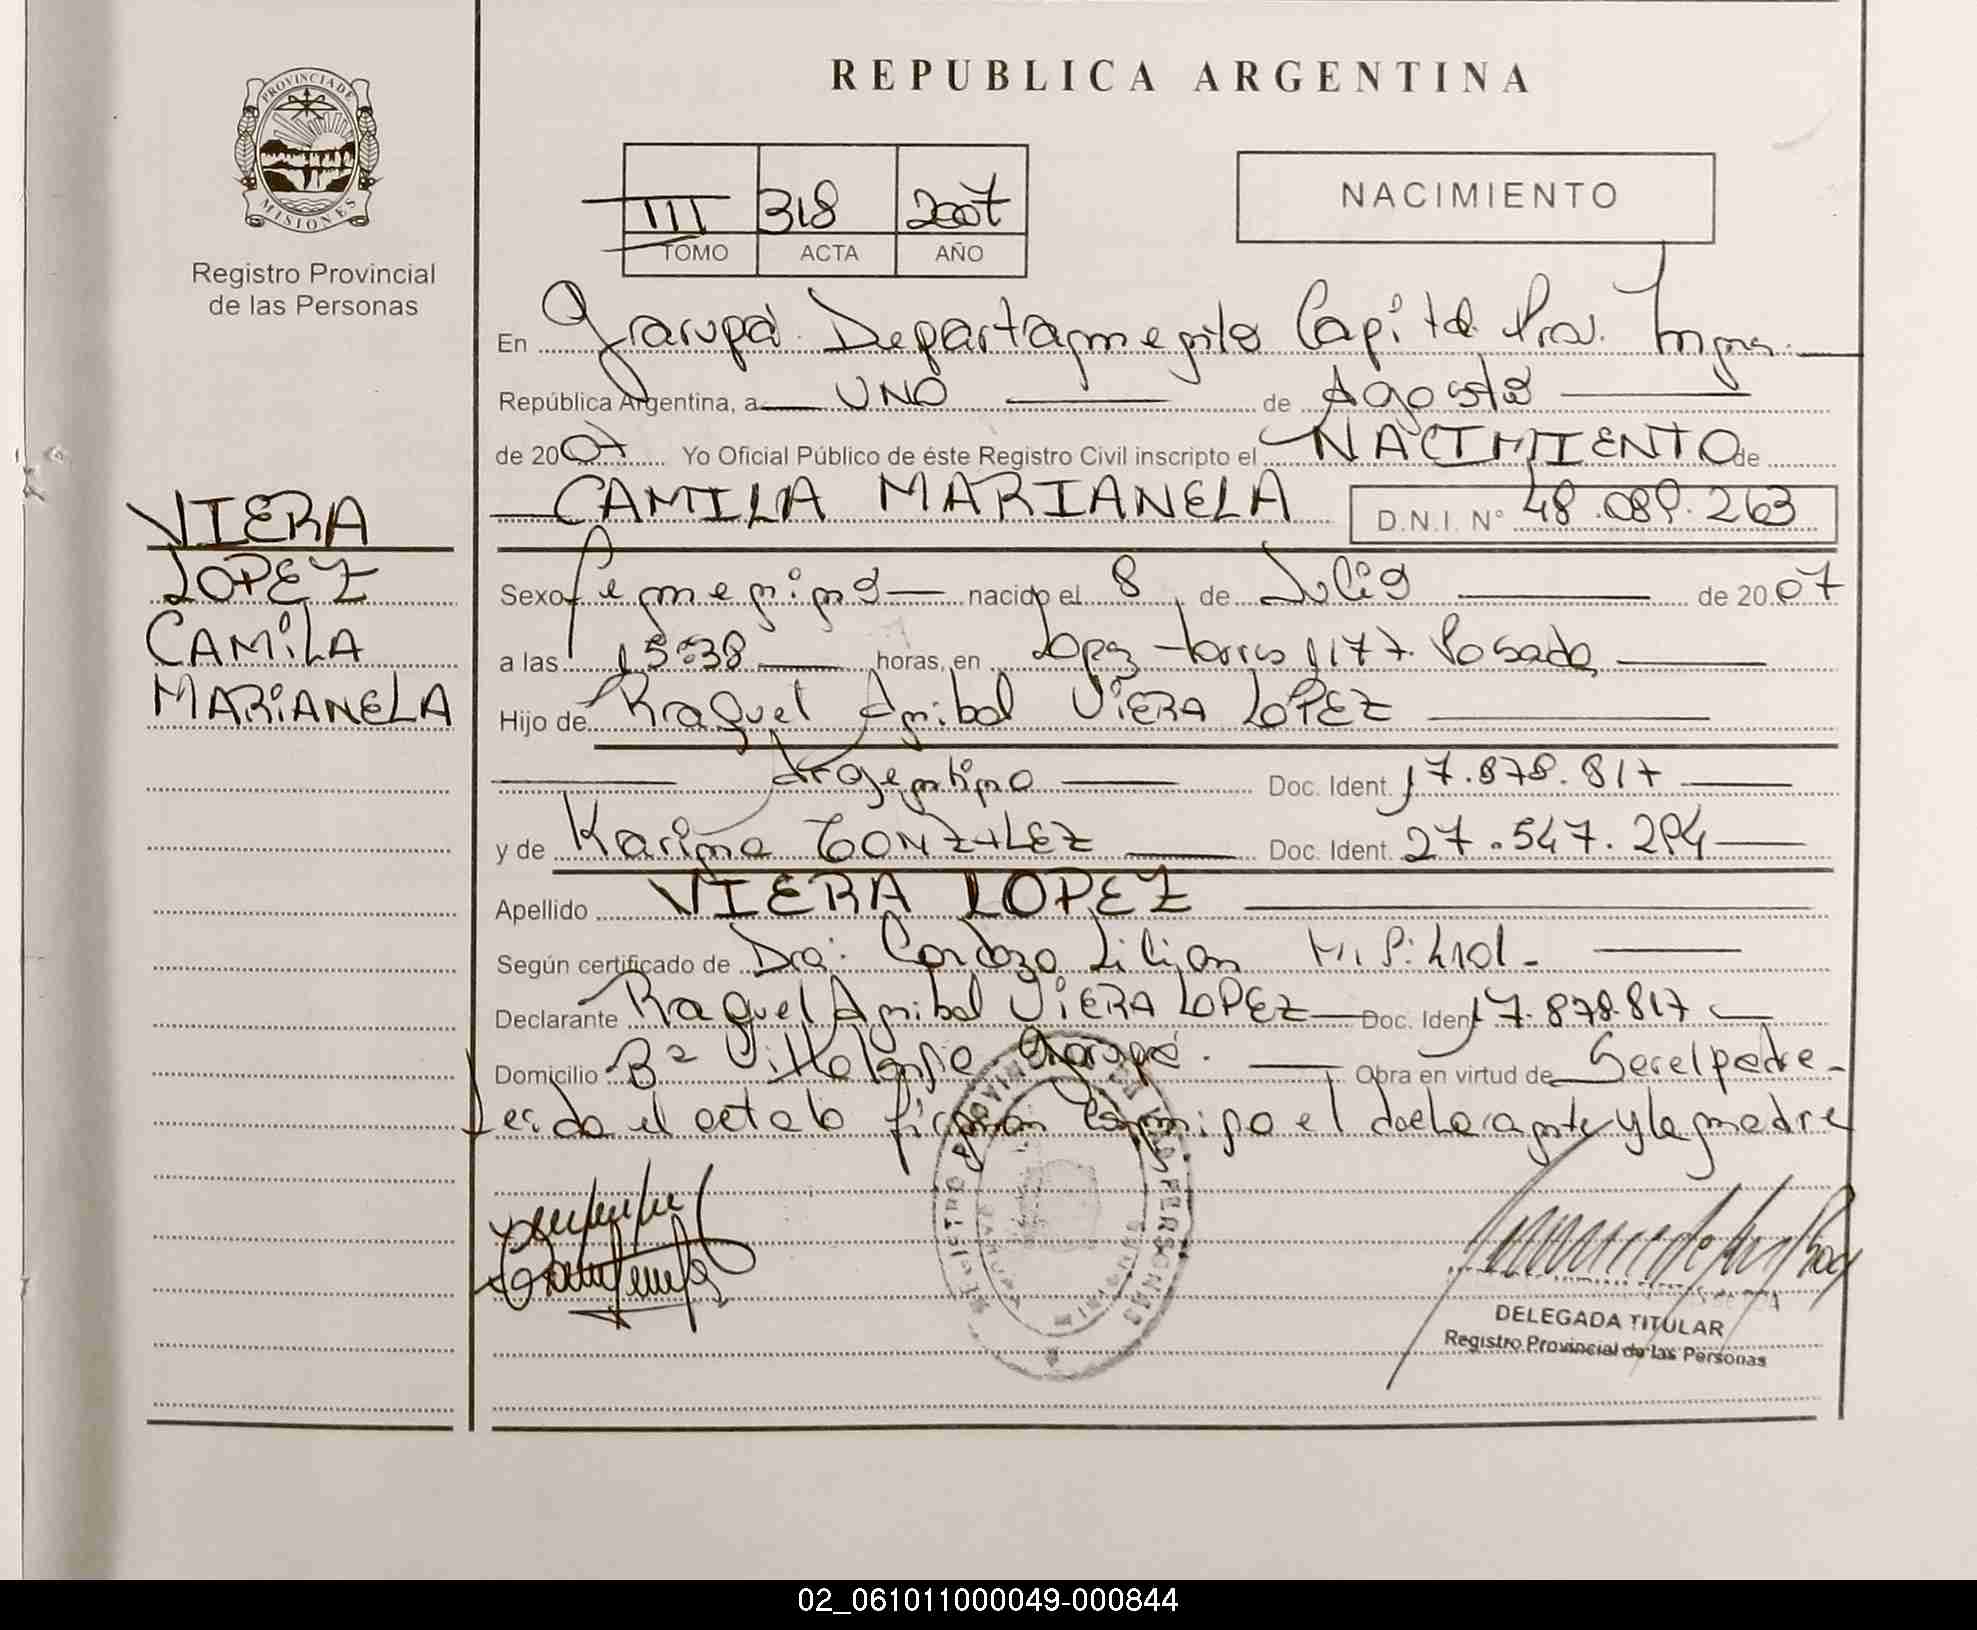 REPUBLICA ARGENTINA
PROVINCIA DE MISIONES
Registro Provincial
de las Personas
III 318 2007
TOMO ACTA AÑO
NACIMIENTO
En Garupá Departamento Capital Prov. Mnes.
República Argentina, a UNO de Agosto
de 2007 Yo Oficial Público de éste Registro Civil inscripto el NACIMIENTO de
CAMILA MARIANELA D.N.I. N° 48.089.263
VIERA
LOPEZ
CAMiLA
MARiANELA
Sexo femenino nacido el 8 de Julio de 2007
a las 15:38 horas, en Lopez torres 1177. Posadas
Hijo de Raquel Anibal VIERA LOPEZ
Argentino Doc. Ident. 17.878.817
y de Karina GONZALEZ Doc. Ident. 27.547.294
Apellido VIERA LOPEZ
Según certificado de Dra. Cardozo Lilian M.P.
Declarante Raquel Anibal VIERA LOPEZ Doc. Ident 17.878.817
Domicilio Bº Villalonga Garupá. Obra en virtud de Ser el padre
Leida el acta la firman conmigo el declarante y la madre
DELEGADA TITULAR
Registro Provincial de las Personas
REGISTRO PROVINCIAL DE LAS PERSONAS
MISIONES
02_061011000049-000844